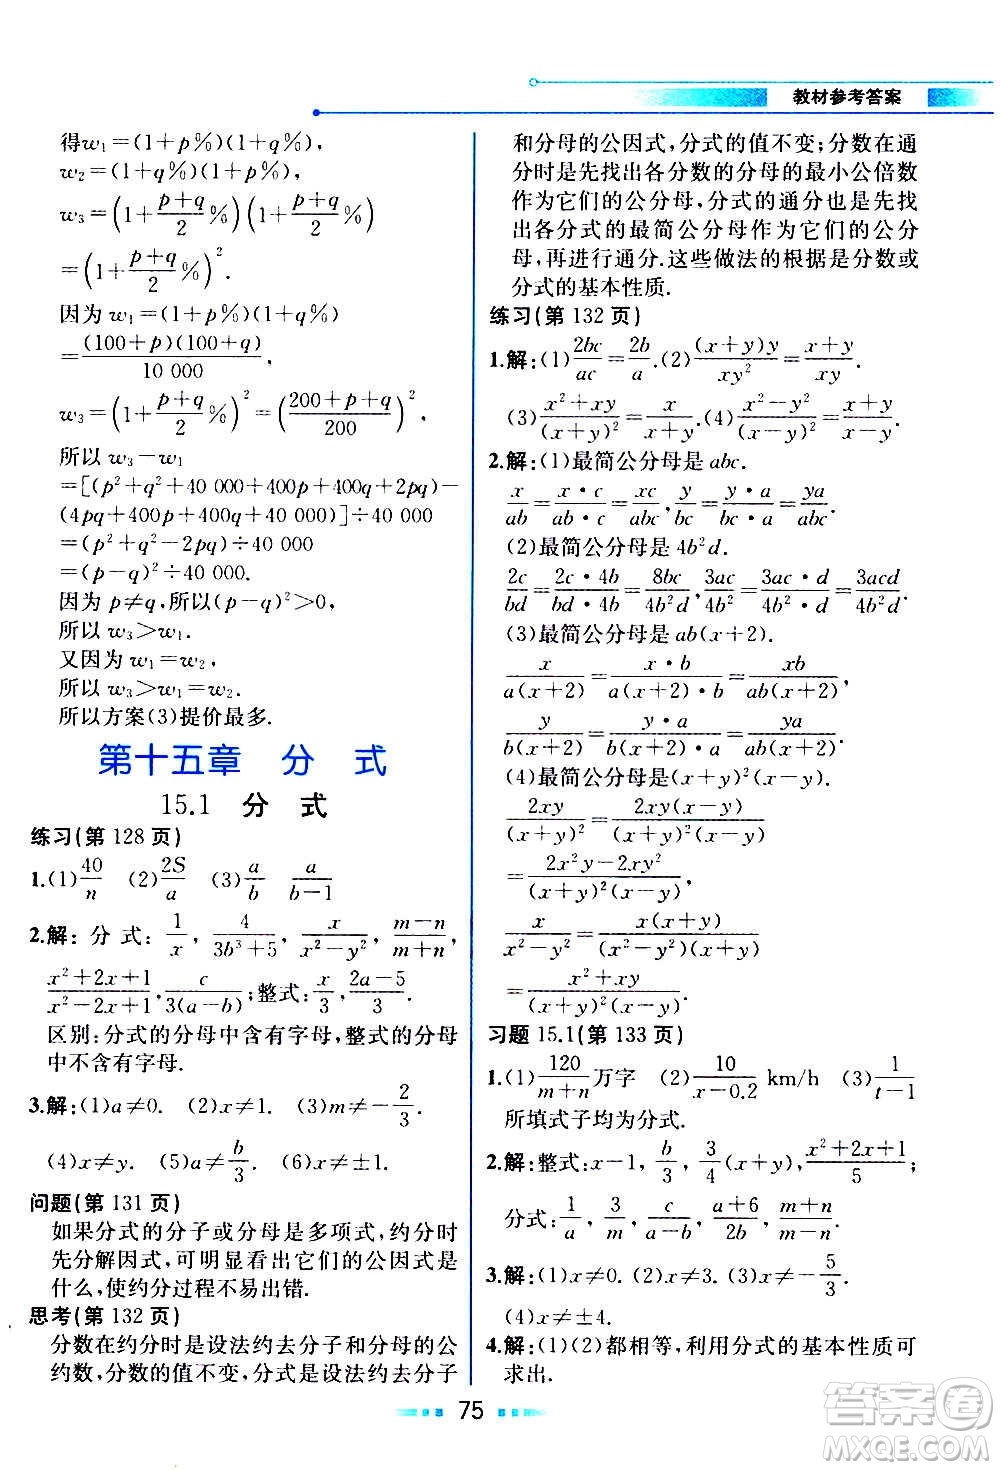 教材参考答案
得w₁=(1+p%)(1+q%),
w₂=(1+q%)(1+p%),
w₃=(1+\frac{p+q}{2}%)(1+\frac{p+q}{2}%)
=(1+\frac{p+q}{2}%)².
因为 w₁=(1+p%)(1+q%)
=\frac{(100+p)(100+q)}{10 000},
w₃=(1+\frac{p+q}{2}%)²=(\frac{200+p+q}{200})²,
所以 w₃-w₁
=[(p²+q²+40 000+400p+400q+2pq)-
(4pq+400p+400q+40 000)]÷40 000
=(p²+q²-2pq)÷40 000
=(p-q)²÷40 000.
因为 p≠q,所以(p-q)²>0,
所以 w₃>w₁.
又因为 w₁=w₂,
所以 w₃>w₁=w₂.
所以方案(3)提价最多.
第十五章 分 式
15.1 分 式
练习(第 128 页)
1.(1)\frac{40}{n} (2)\frac{2S}{a} (3)\frac{a}{b} \frac{a}{b-1}
2.解:分 式:\frac{1}{x},\frac{4}{3b³+5},\frac{x}{x²-y²},\frac{m-n}{m+n},
\frac{x²+2x+1}{x²-2x+1},\frac{c}{3(a-b)};整式:\frac{x}{3},\frac{2a-5}{3}.
区别:分式的分母中含有字母,整式的分母
中不含有字母.
3.解:(1)a≠0. (2)x≠1. (3)m≠-\frac{2}{3}.
(4)x≠y. (5)a≠\frac{b}{3}. (6)x≠±1.
问题(第 131 页)
如果分式的分子或分母是多项式,约分时
先分解因式,可明显看出它们的公因式是
什么,使约分过程不易出错.
思考(第 132 页)
分数在约分时是设法约去分子和分母的公
约数,分数的值不变,分式是设法约去分子
和分母的公因式,分式的值不变;分数在通
分时是先找出各分数的分母的最小公倍数
作为它们的公分母,分式的通分也是先找
出各分式的最简公分母作为它们的公分
母,再进行通分.这些做法的根据是分数或
分式的基本性质.
练习(第 132 页)
1.解:(1)\frac{2bc}{ac}=\frac{2b}{a}.(2)\frac{(x+y)y}{xy²}=\frac{x+y}{xy}.
(3)\frac{x²+xy}{(x+y)²}=\frac{x}{x+y}.(4)\frac{x²-y²}{(x-y)²}=\frac{x+y}{x-y}.
2.解:(1)最简公分母是 abc.
\frac{x}{ab}=\frac{x·c}{ab·c}=\frac{xc}{abc},\frac{y}{bc}=\frac{y·a}{bc·a}=\frac{ya}{abc}.
(2)最简公分母是 4b²d.
\frac{2c}{bd}=\frac{2c·4b}{bd·4b}=\frac{8bc}{4b²d},\frac{3ac}{4b²}=\frac{3ac·d}{4b²·d}=\frac{3acd}{4b²d}.
(3)最简公分母是 ab(x+2).
\frac{x}{a(x+2)}=\frac{x·b}{a(x+2)·b}=\frac{xb}{ab(x+2)},
\frac{y}{b(x+2)}=\frac{y·a}{b(x+2)·a}=\frac{ya}{ab(x+2)}.
(4)最简公分母是(x+y)²(x-y).
\frac{2xy}{(x+y)²}=\frac{2xy(x-y)}{(x+y)²(x-y)}
=\frac{2x²y-2xy²}{(x+y)²(x-y)},
\frac{x}{x²-y²}=\frac{x(x+y)}{(x²-y²)(x+y)}
=\frac{x²+xy}{(x+y)²(x-y)}.
习题 15.1(第 133 页)
1.(1)\frac{120}{m+n}万字 (2)\frac{10}{x-0.2} km/h (3)\frac{1}{t-1}
所填式子均为分式.
2.解:整式:x-1,\frac{b}{3},\frac{3}{4}(x+y),\frac{x²+2x+1}{5};
分式:\frac{1}{a},\frac{5}{m},\frac{c}{a-b},\frac{a+6}{2b},\frac{m+n}{m-n}.
3.解:(1)x≠0. (2)x≠3. (3)x≠-\frac{5}{3}.
(4)x≠±4.
4.解:(1)(2)都相等,利用分式的基本性质可
求出.
75
答案圈
MXQE.COM